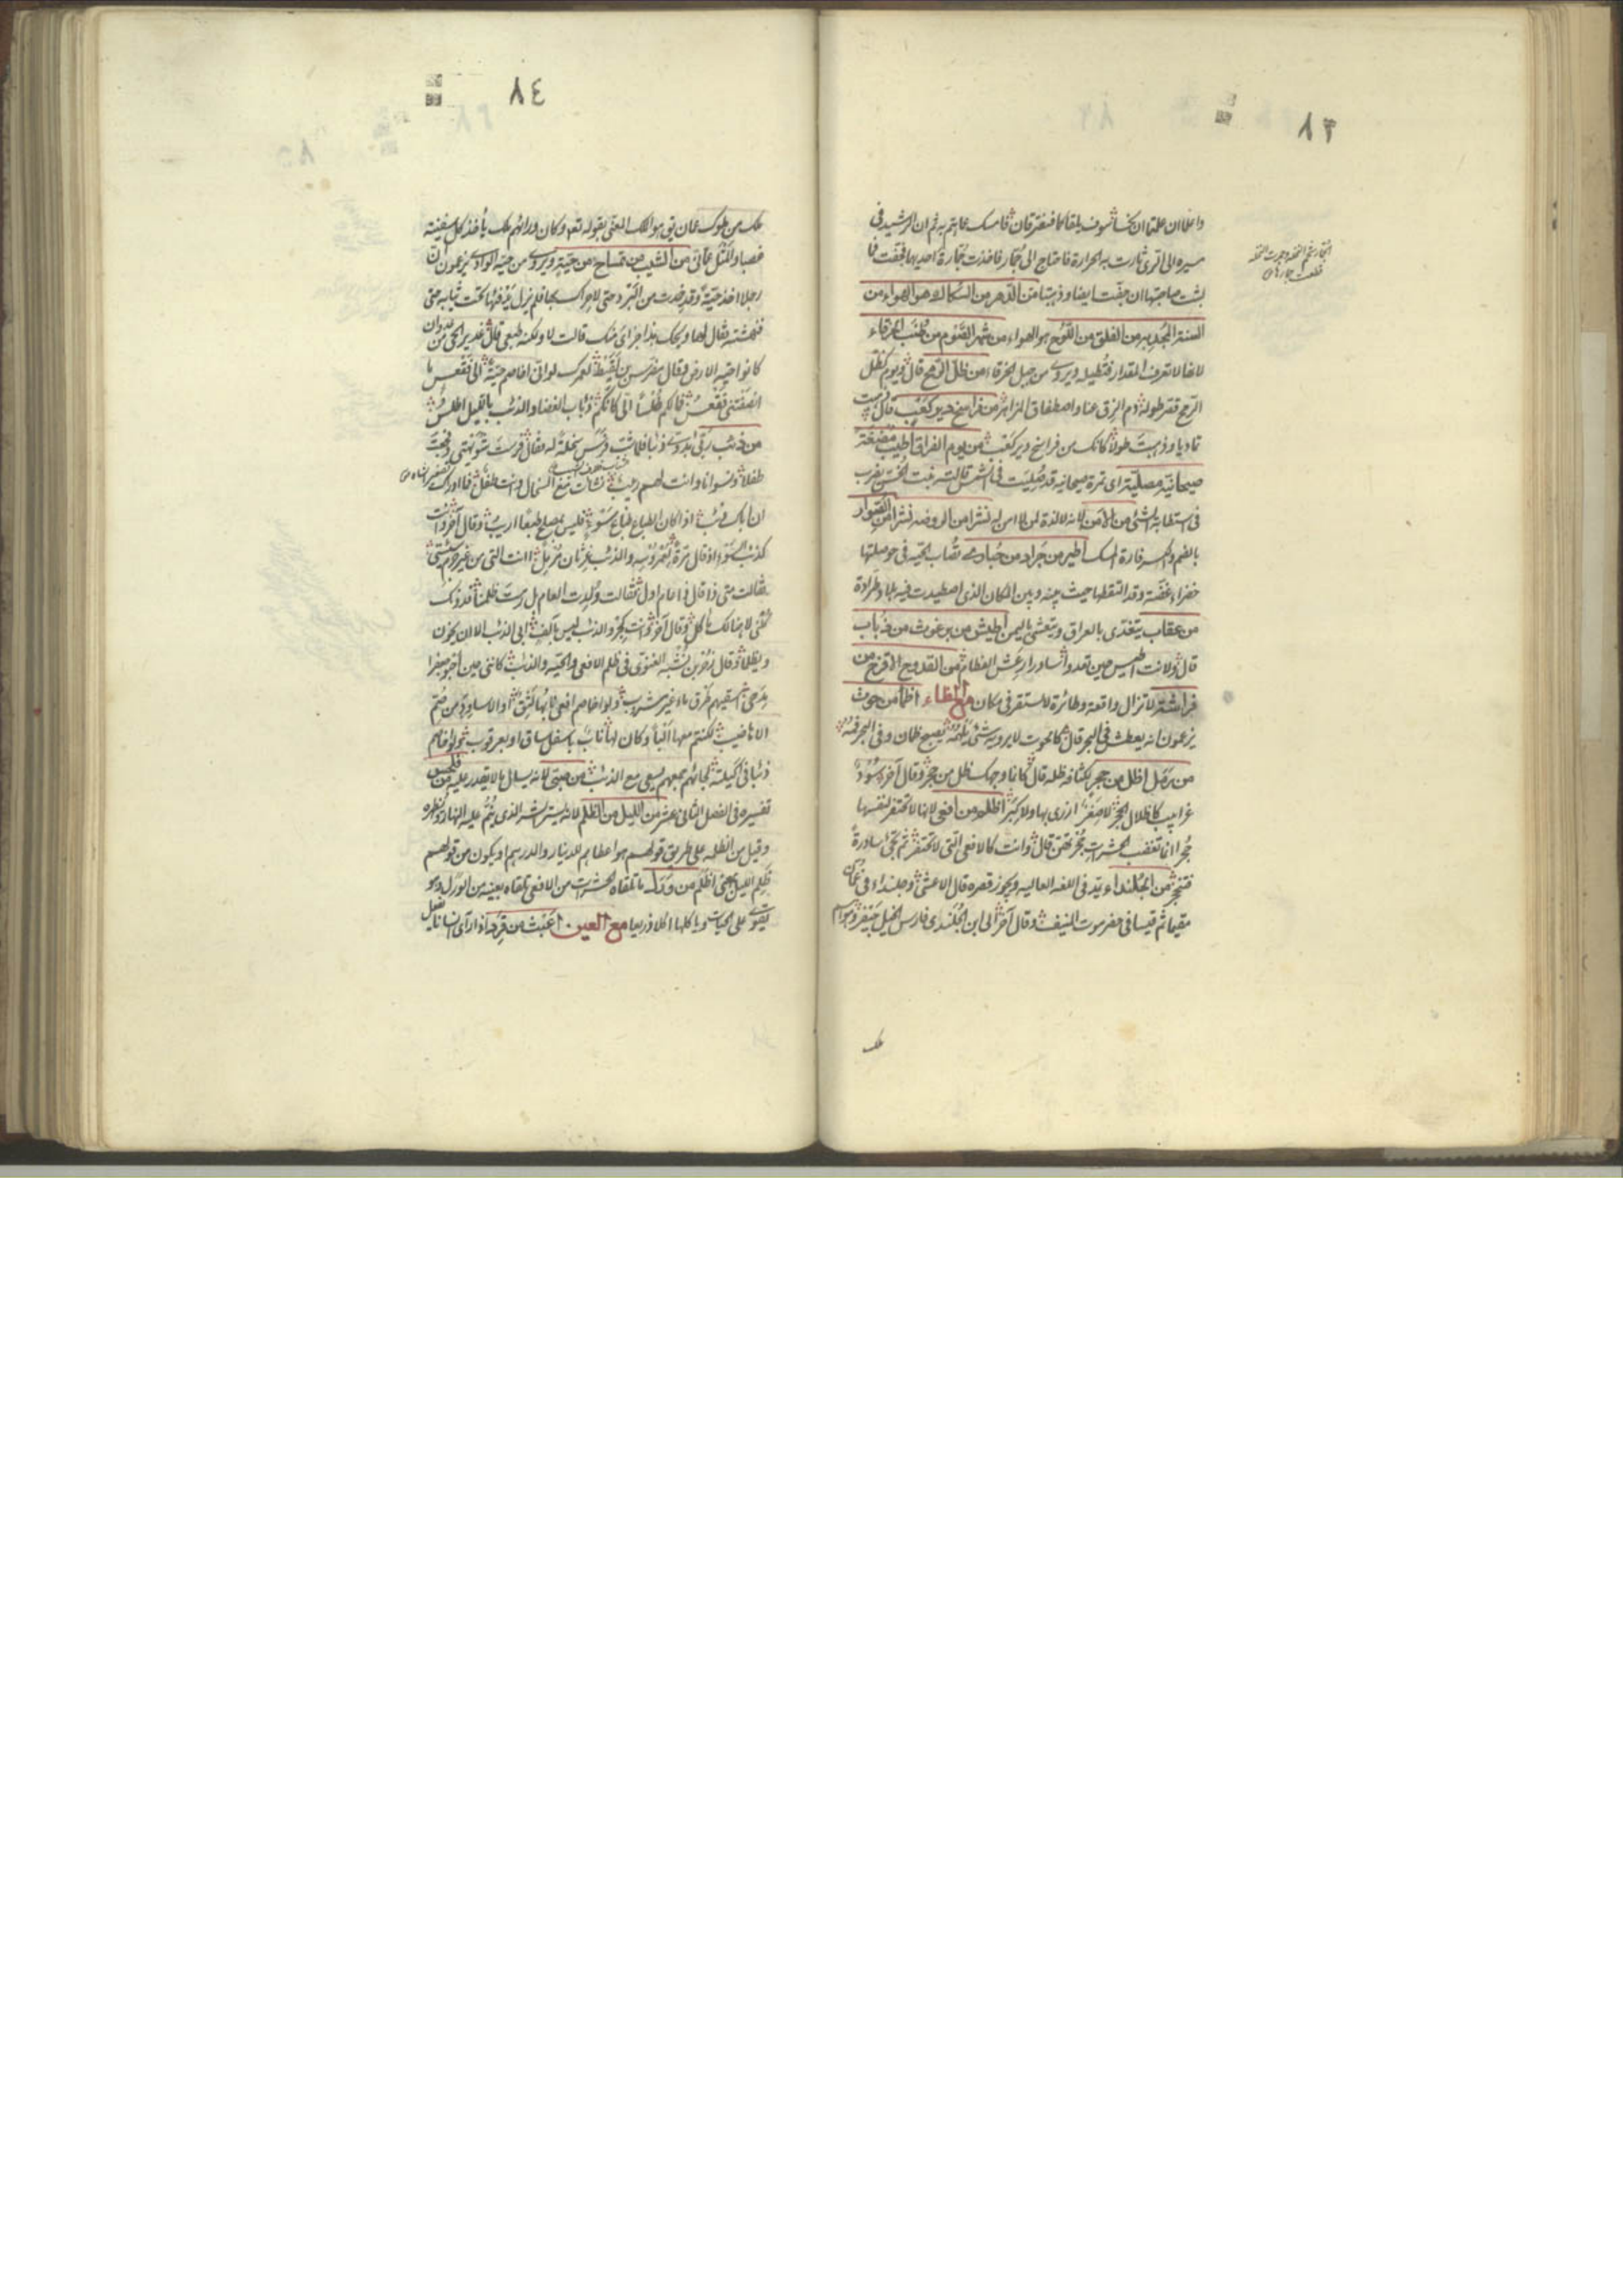 ٨٣
واعلما ان علمتما ان كخا سوف يلقاكما فسنفترقان فامسك عما هم به ثم ان الرشيد في
مسيره الى الري ثارت به الحرارة فاحتاج الى جمار فاخذت جمارة احديهما فجفت فما
لبثت صاحبتها ان جفت ايضا وذهبتا من الدهر من السكاك هو الهواء من
السنة المجدبة من الفلق من اللوح هو الهواء من شهر الصوم من طنب الخرقاء
لانها لا تعرف المقدار فتطيله ويروى من حبل الخرقاء من ظل الرمح قال ويوم كظل
الرمح قصر طوله دم الزق عنا واصطفاق المزاهر من فراسخ دير كعب قال ذهبت
تماديا وذهبت طولا كانك من فراسخ دير كعب من يوم الفراق اطيب مضغة
صيحانية مصلبة اى تمرة صيحانية قد صلبت في الشمس قالته بنت الخس يضرب
في استطابة الشئ من الامن لانه لا لذة لمن لا امن له نشرا من الروضة نشرا من الصوار
بالضم والكسر فارة المسك اطير من جراد من حبارى تصاب الحبة في حوصلتها
خضراء غضة وقد التقطتها حيث بينه وبين المكان الذى اصطيدت فيه بلاد وطرادة
من عقاب يتغدى بالعراق ويتعشى باليمن اطيش من برغوث من ذباب
قال ولانت اطيش حين تغدو سادرا رعش العظام من القدوح الاقرح من
فراشة لا تزال واقعة وطائرة لا تستقر في مكان مع الظاء اظمأ من حوت
يزعمون انه يعطش في البحر قال كالحوت لا يرويه شئ يلهمه يصبح ظمان وفى البحر فمه
من رمل اظل من حجر لكثافة ظله قال كانما وجهك ظل من حجر وقال آخر سود
غرابيب كاظلال الحجر لا صغر ازرى بها ولا كبر اظلم من افعى لانها لا تحتفر لنفسها
جحرا انما تغصب الحشرات جحرتهن قال وانت كالافعى التى لا تحتفر ثم تجى سادرة
فتنجحر من الجلنداء يمد في اللغة العالية ويجوز قصره قال الاعشى وجلنداء في عمان
مقيما ثم قيسا في حضرموت المنيف وقال آخر الى ابن الجلندى فارس الخيل جيفر وهو اسم
ملك
ملك من ملوك عمان يق هو الملك المعنى بقوله تع وكان وراءهم ملك يأخذ كل سفينة
غصبا والمثل عمانى من الشيب من تمساح من حية ويروى من حية الوادى يزعمون ان
رجلا اخذ حية وقد خدرت من البرد حتى لا حراك بها فلم يزل يدفئها تحت ثيابه حتى
فنهشته فقال لها ويحك هذا جزائى منك قالت لا ولكنه طبعى قال غدير الحى من عدوان
كانوا حية الارض وقال مضرس بن لقيط لعمرك لو انى اخاصم حية الى فقعس ما
انصفتنى فقعس فما لكم طلسا الى كانكم ذئاب الغضا والذئب بالليل اطلس
من ذئب ربى اعرابى ذئبا فلما شب فرس سخلة له فقال فرست شويهتى وفجعت
طفلا ونسوانا وانت لهم ربيب نشات مع السخال وانت طفل فما ادراك
ان اباك ذئب اذا كان الطباع طباع سوء فليس بمصلح طبعا اريب وقال آخر وانت
كذئب السوء اذ قال مرة لعمروسة والذئب غرثان مرمل اانت التى من غير جرم سببتنى
فقالت متى ذا قال ذا عام اول فقالت ولدت العام بل رمت ظلمنا فدونك
كلنى لا هنالك مأكل وقال آخر وانت كجرو الذئب ليس بآلف ابى الذئب الا ان يخون
ويظلما وقال زفر بن نشبة الغنوى في ظلم الافعى والحية والذئب كانى حين احبو جعفرا
مدحى اسقيهم طرق ماء غير مشروب ولو اخاصم افعى نابها لثق او الاساود من صم
الاهاضيب لكنتم معها البا وكان لها ناب باسفل ساق او بعرقوب ولو اخاصم
ذئبا في اكيلته لجائنى جمعهم يسعى مع الذئب من صبى لانه يسال ما لا يقدر عليه من فلحس
تفسيره في الفصل الثانى عشر من الليل من الظلم لانه يستر بشره الذى يتم عليه النهار ويظهره
وقيل من الظلمة على طريق قولهم هو اعطاهم للدينار والدرهم او يكون من قولهم
ظلم الليل بمعنى اظلم من ورل ما تلقاه الحشرات من الافعى تلقاه بعينه من الورل وهو
يقوى على الحيات وياكلها اكلا ذريعا مع العين اعبث من قرد اذا رأى انسانا يفعل
٨٤